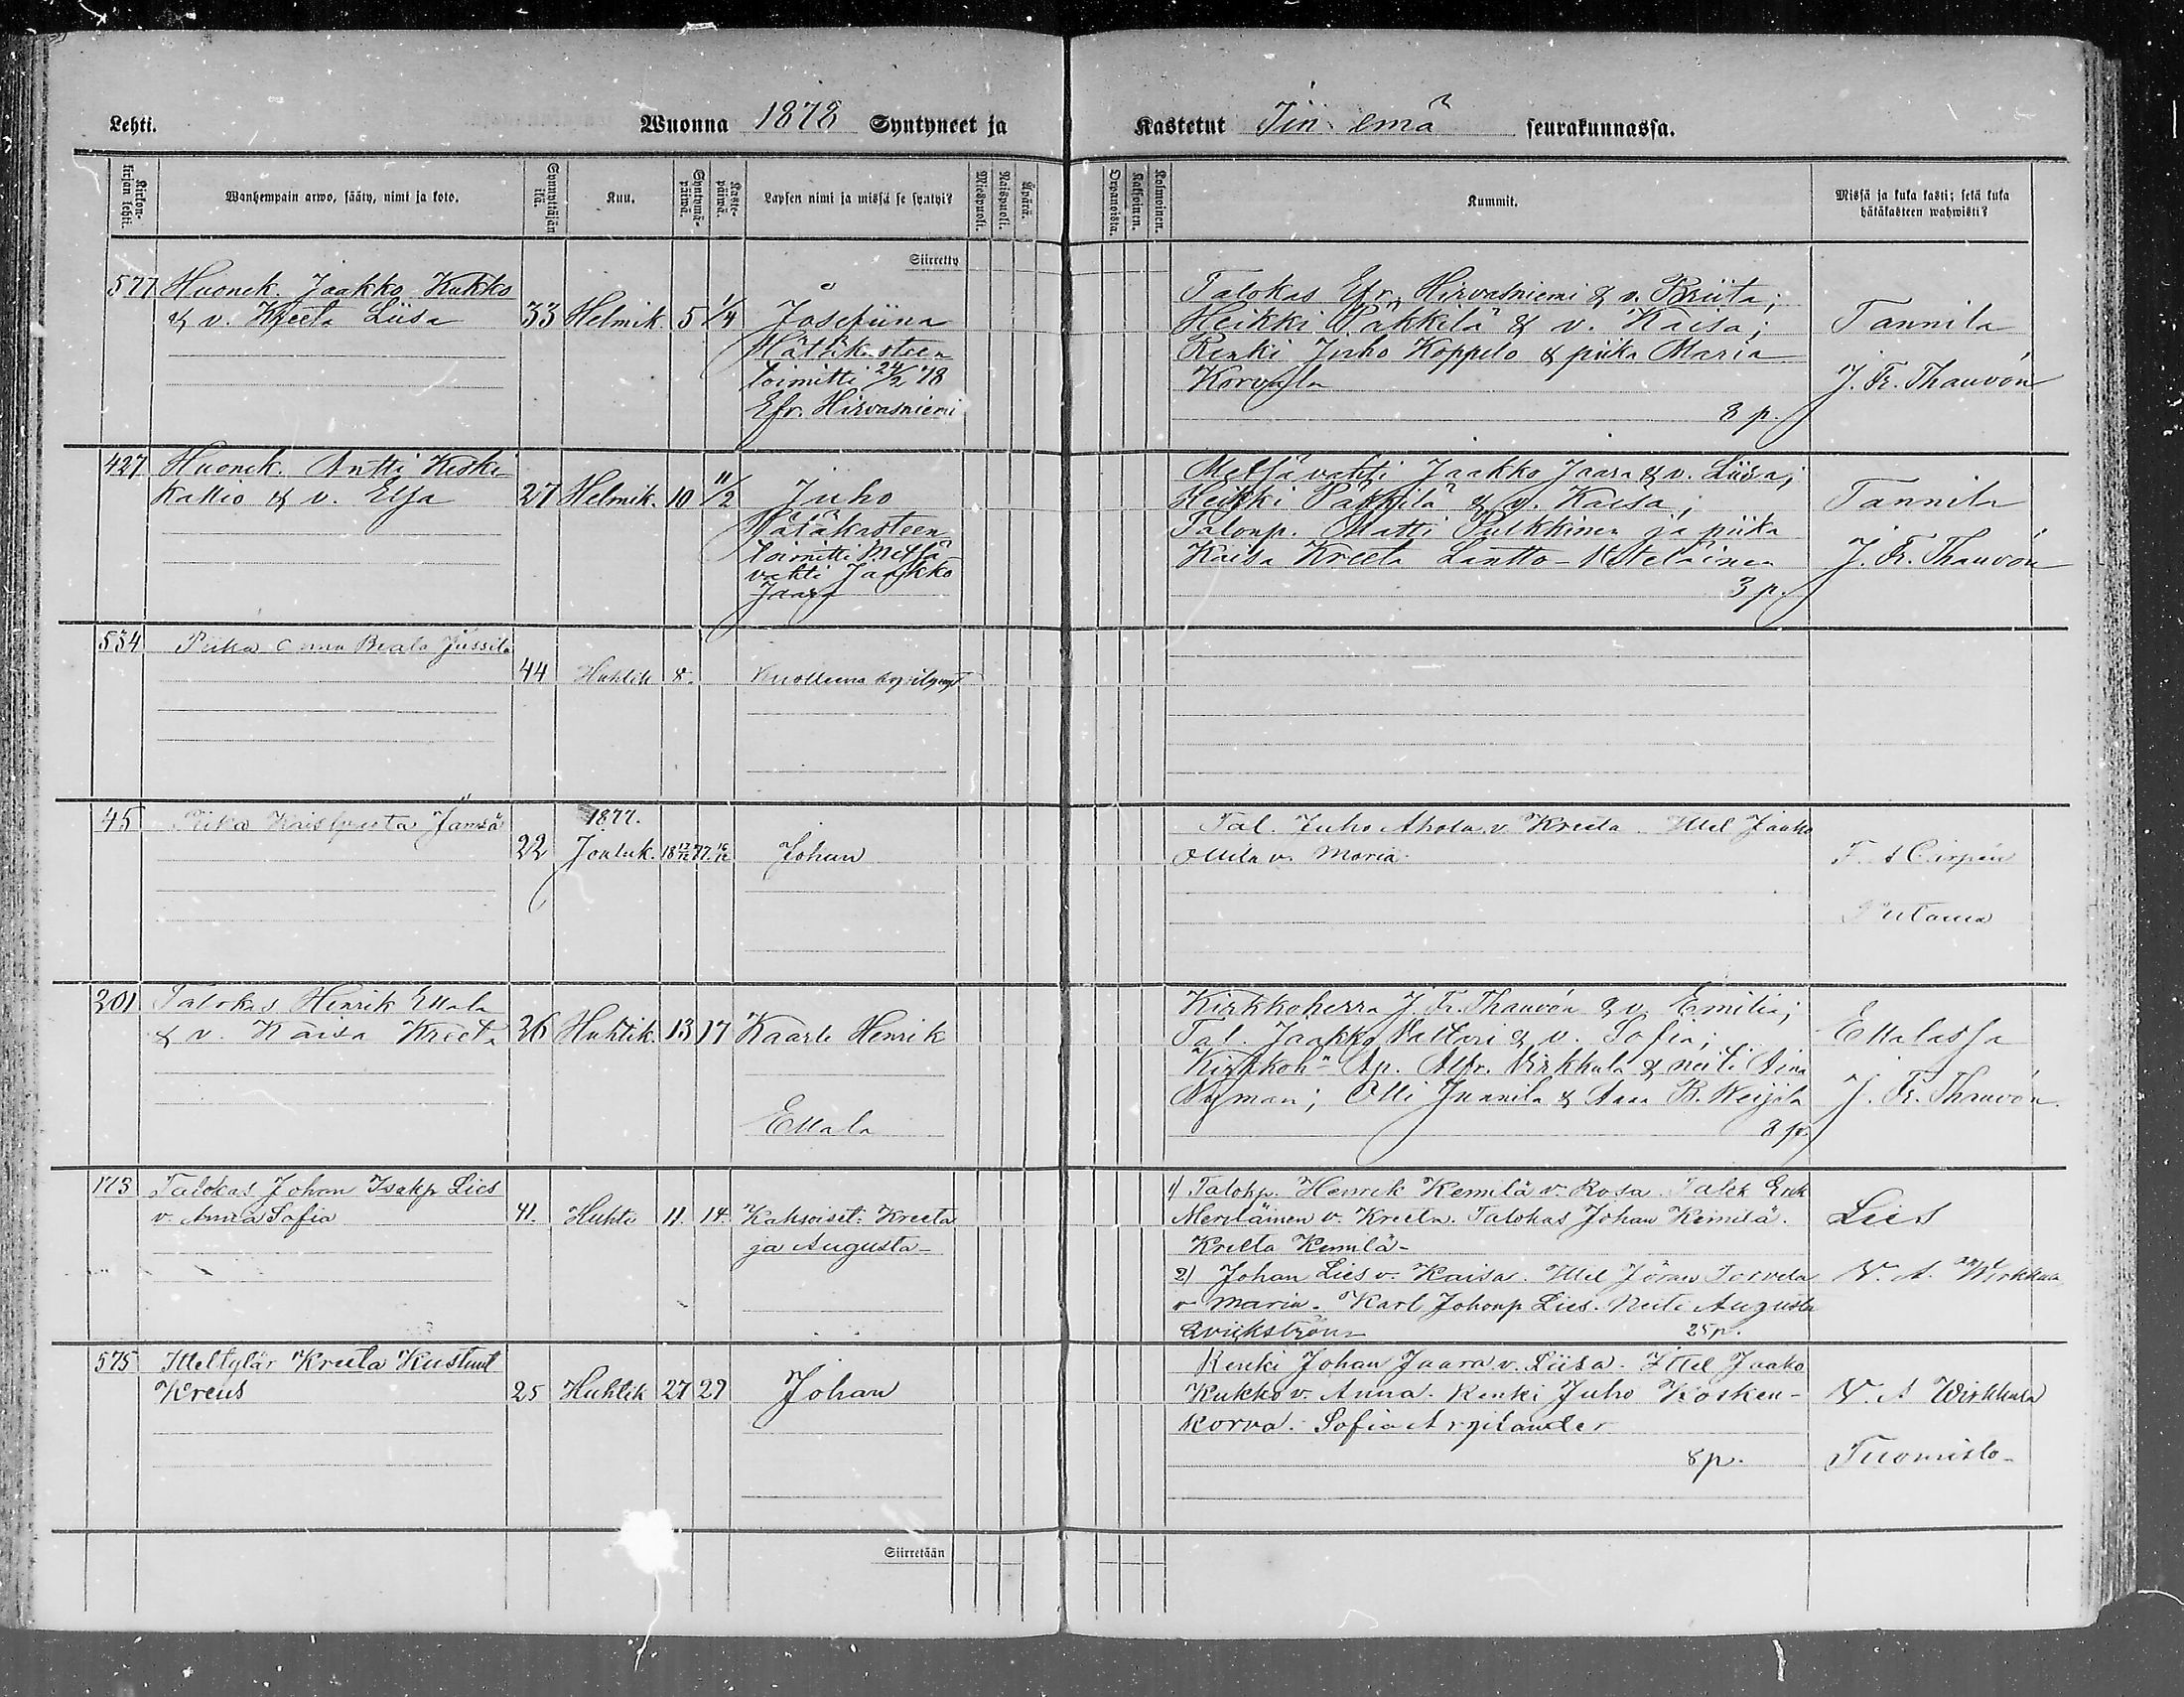 Lehti.
Wuonna 1878 Syntyneet ja Kastetut Iin emä seurakunnassa.
Ripin-kirjan lehti.
Wanhempain arwo, sääty, nimi ja koto.
Synnyttäjän ikä
Kuu.
Syntymä-päiwä.
Kaste-päiwä.
Lapsen nimi ja missä se syntyi?
Miespuoli.
Naispuoli.
Äpärä.
Orpanoista.
Kaksoinen.
Kolmoinen.
Kummit.
Missä ja kuka kasti; sekä kuka
hätäkasteen wahwisti?
Siirretty
577 Huonek. Jaakko Kukko
& v. Kreeta Liisa 33 Helmik. 5 1/4 Josefiina
Hätäkasteen
toimitti 24/2 78
Efr. Hirvasniemi
Talokas Efr. Hirvasniemi & v. Briita;
Heikki Päkkilä & v. Kaisa;
Renki Juho Koppelo & piika Maria
Korvala
8 p.
Tannila
J. Fr. Thauvón
427 Huonek. Antti Keski
Kallio & v. Elsa 27 Helmik. 10 11/2 Juho
Hätäkasteen
toimitti Metsä-
vahti Jaakko
Jaara
Metsävahti Jaakko Jaara & v. Liisa;
Heikki Päkkilä & v. Kaisa;
Talonp. Matti Pulkkinen ja piika
Kaisa Kreeta Lantto-
3 p.
Tannila
J. Fr. Thauvón
534 Piika Anna Beata Jussila
44 Huhtik 8. Kuolleena
45 Piika Jämsä
1877.
22 Jouluk. Johan
Tal. Juho Ahola v. Kreeta. Itel Jaako
Ollila v. Maria.
201 Talokas Henrik Ellala
& v. Kaisa Kreeta 26 Huhtik. 13 17 Kaarle Henrik
Ellala
Kirkkoherra J. Fr. Thauvón & v. Emilia;
Tal. Jaakko Valtari & v. Sofia;
Kirkkoh. Ap. Alfr. Virkkula & neiti Aina
Nyman; Olli Junnila & Anna B. Weijola
8 p.
Ellalassa
J. Fr. Thauvón.
173 Talokas Johan Isakp Lies
v. Anna Sofia 41. Huhti 11. 14. Kaksoiset: Kreeta
ja Augusta-
1) Talokp. Henrik Kemilä v. Rosa. Talok Erik
Meriläinen v. Kreeta. Talokas Johan Kemilä.
Kreeta Kemilä-
2) Johan Lies v. Kaisa. Itel Jöran Torvela
v Maria. Karl Johanp Lies. Neiti Augusta
Qvickström 25 p.
Lies
V. A. Wirkkula
575 Itellylär Kreeta Kustaat
Kreus 25 Huhtik 27 29 Johan
Renki Johan Jaara v. Liisa. Itel Jaako
Kukko v. Anna. Renki Juho Kosken-
korva. Sofia Argilander
8 p.
V. A Wirkkula
Tuomisto-
Siirretään